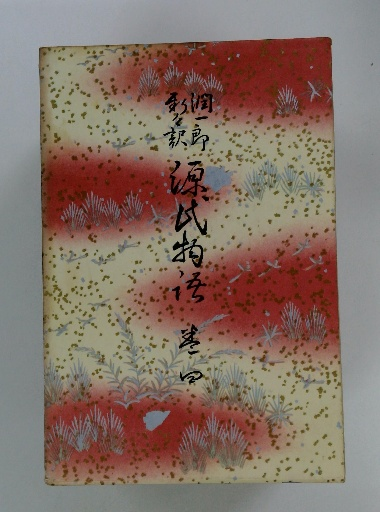 潤一郎
新々訳
源氏物語
巻四